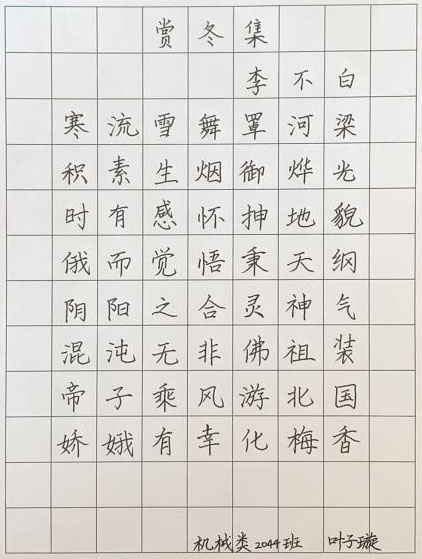 赏冬集
李不白
寒流雪舞罩河梁
积素生烟御烨光
时有感怀抻地貌
俄而觉悟秉天纲
阴阳之合灵神气
混沌无非佛祖装
帝子乘风游北国
娇娥有幸化梅香
机械类2044班 叶子璇